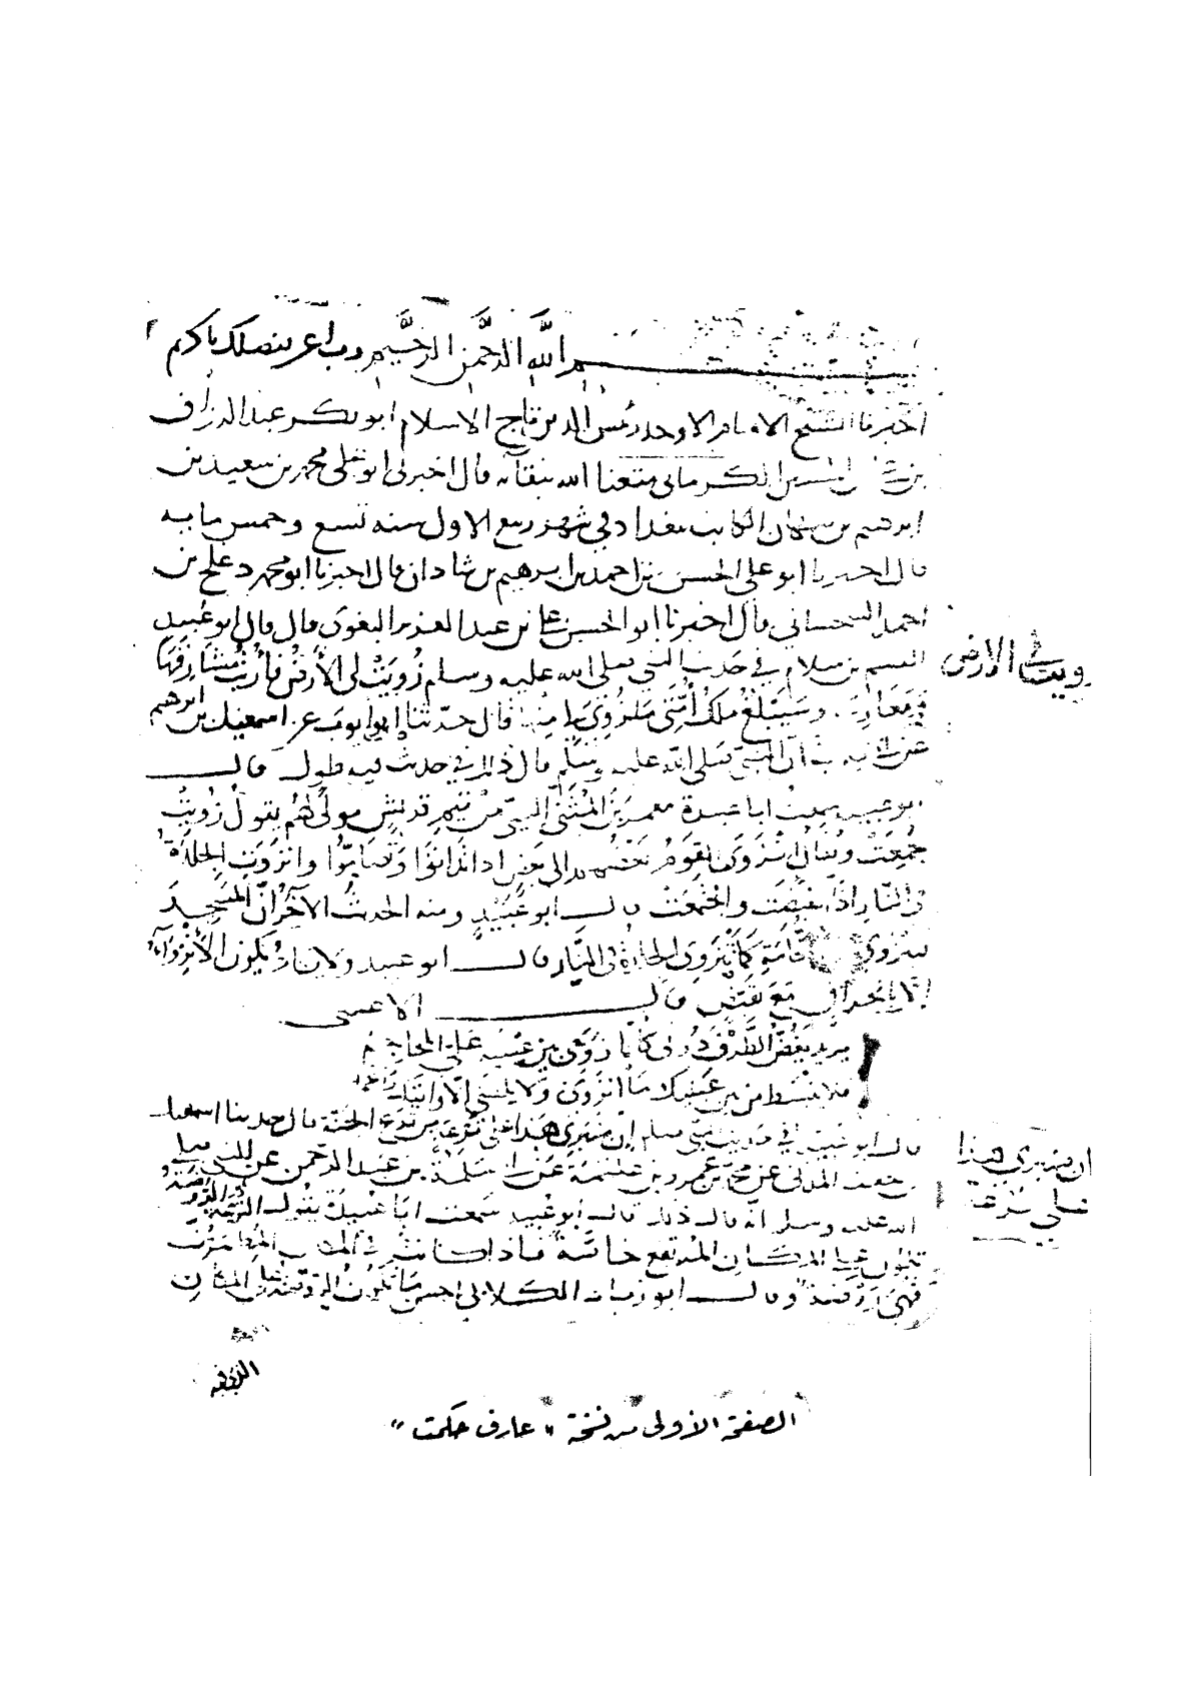 بسم الله الرحمن الرحيم رب اعن بفضلك يا كريم
اخبرنا الشيخ الامام الاوحد رئيس الدين تاج الاسلام ابو بكر عبد الرزاق
بن الكرماني متعنا الله ببقائه قال اخبرني ابو علي محمد بن سعيد بن
ابرهيم بن نبهان الكاتب ببغداد في شهر ربيع الاول سنه تسع وخمس مايه
قال اخبرنا ابو علي الحسن بن احمد بن ابرهيم بن شاذان قال اخبرنا ابو محمد دعلج بن
احمد السجستاني قال اخبرنا ابو الحسن علي بن عبد العزيز البغوي قال قال ابو عُبيدٍ
القسم بن سلام في حديث النبي صلى الله عليه وسلم زُويَتْ لي الأرضُ فأُريتُ مشارقَها
ومَغَاربَها وسَيَبْلغُ ملكُ أمَّتي مَا زُوِيَ لي منها قال حدّثنا ابو ايوب عن اسمعيل بن ابرهيم
عن أن النبيّ صَلى الله عليه وسَلم قال ذلك في حديث فيه طول قال
ابو عبيد سمعتُ ابا عبيدة معمر بنَ المُثنَّى التيميّ من تيم قريشٍ مولًى لهُم يقول زُويَتْ
جُمِعَتْ ويقال انْزَوَى القومُ بَعْضُهم الى بَعْضٍ اذا تَدَانَوْا وَتَضَامّوُا وانزَوَتِ الجلدَةُ
في النّارِ اذا انقبَضت واجْتمعَتْ قال ابو عُبَيْدٍ ومنه الحديثُ الآخَرُ إنّ المَسجِدَ
لينزوي النُّخَامَةِ كَمَا تَنْزَوِي الجلدَة في النّارِ قال ابو عبيد ولا يكاد يكون الانْزِوَاءُ
إلا بانحراف مع تقبّض قال الاعشى
يزيد يَغضُّ الطَّرْفَ دُوني كَأنّما زَوَى بين عَيْنَيْهِ عَلَيَّ المحاجمُ
فلا يَنْبَسِط من بين عَينَيك مَا انْزَوَى وَلا تلْقَني إلّا وانفك راغمُ
قال ابو عبيد في حديث النبي إن منبري هَذا على تُرْعةٍ من تُرَعِ الجنّة قال حدثنا اسمعيل
بن جعفر المدني عن محمد بن عمرو بن عَلْقمَةَ عَن ابي سَلمَةَ بن عَبد الرحمن عن النبي صلى
الله عليه وسلم انّه قال ذلك قال ابو عُبيد سَمعت ابَا عُبيدَةَ يقول التُرْعَةُ الرَّوْضَةُ
تكون على المكان المرتفع خاصَّةً فاذا كانت في المكان المطمَئنّ
فهي رَوْضَةٌ وقال ابو زياد الكلابي احسن مَا تكونُ الروضة على المكان
الذي فيه
زويت لي الارض
ان منبري هذا
على ترعة
الصفحة الأولى من نسخة "عارف حكمت"